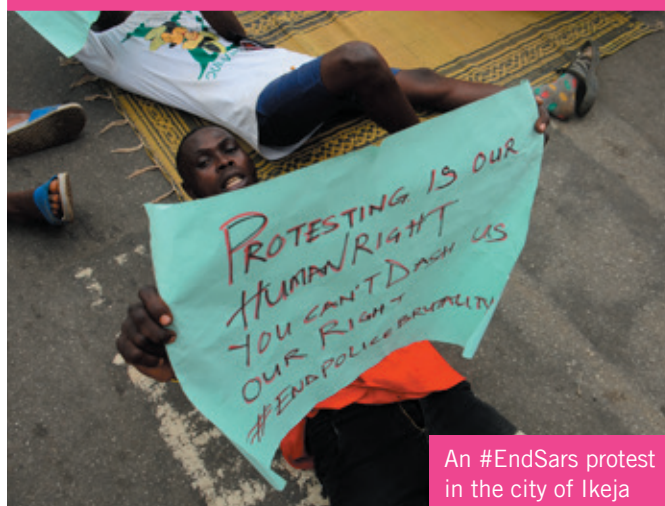 PROTESTING IS OUR
HUMAN RIGHT
YOU CAN'T DASH US
OUR RIGHT
#ENDPOLICEBRUTALITY
An #EndSars protest
in the city of Ikeja